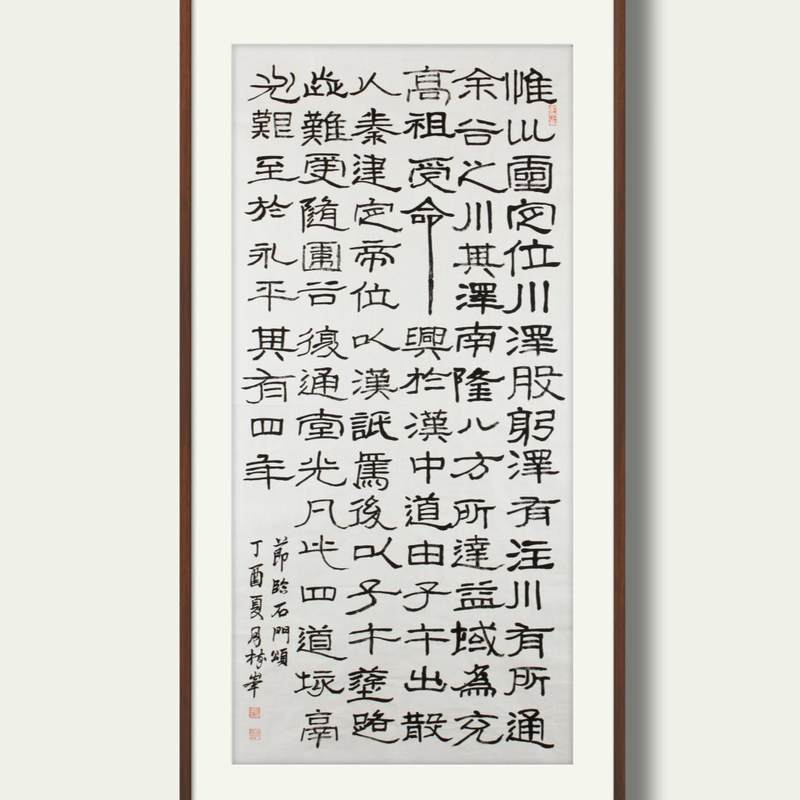 惟巛靈定位川澤股躬澤有注川有所通
余谷之川其澤南隆八方所達益域為充
高祖受命興於漢中道由子午出散
入秦建定帝位以漢詆焉後以子午塗路
歰難更隨圍谷復通堂光凡此四道垓鬲
尤艱至於永平其有四年
節臨石門頌
丁酉夏月林峰